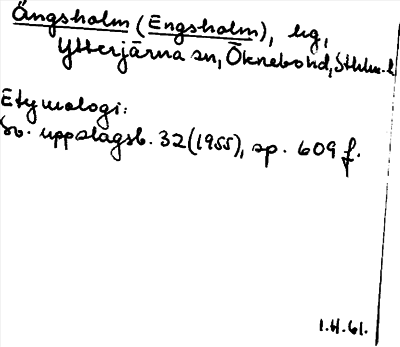 Ängsholm (Engsholm), hg,
Ytterjärna sn, Öknebo hd, Sthlm. l
Etymologi:
Sv. uppslagsb. 32 (1955), sp. 609 f.
1.H.61.